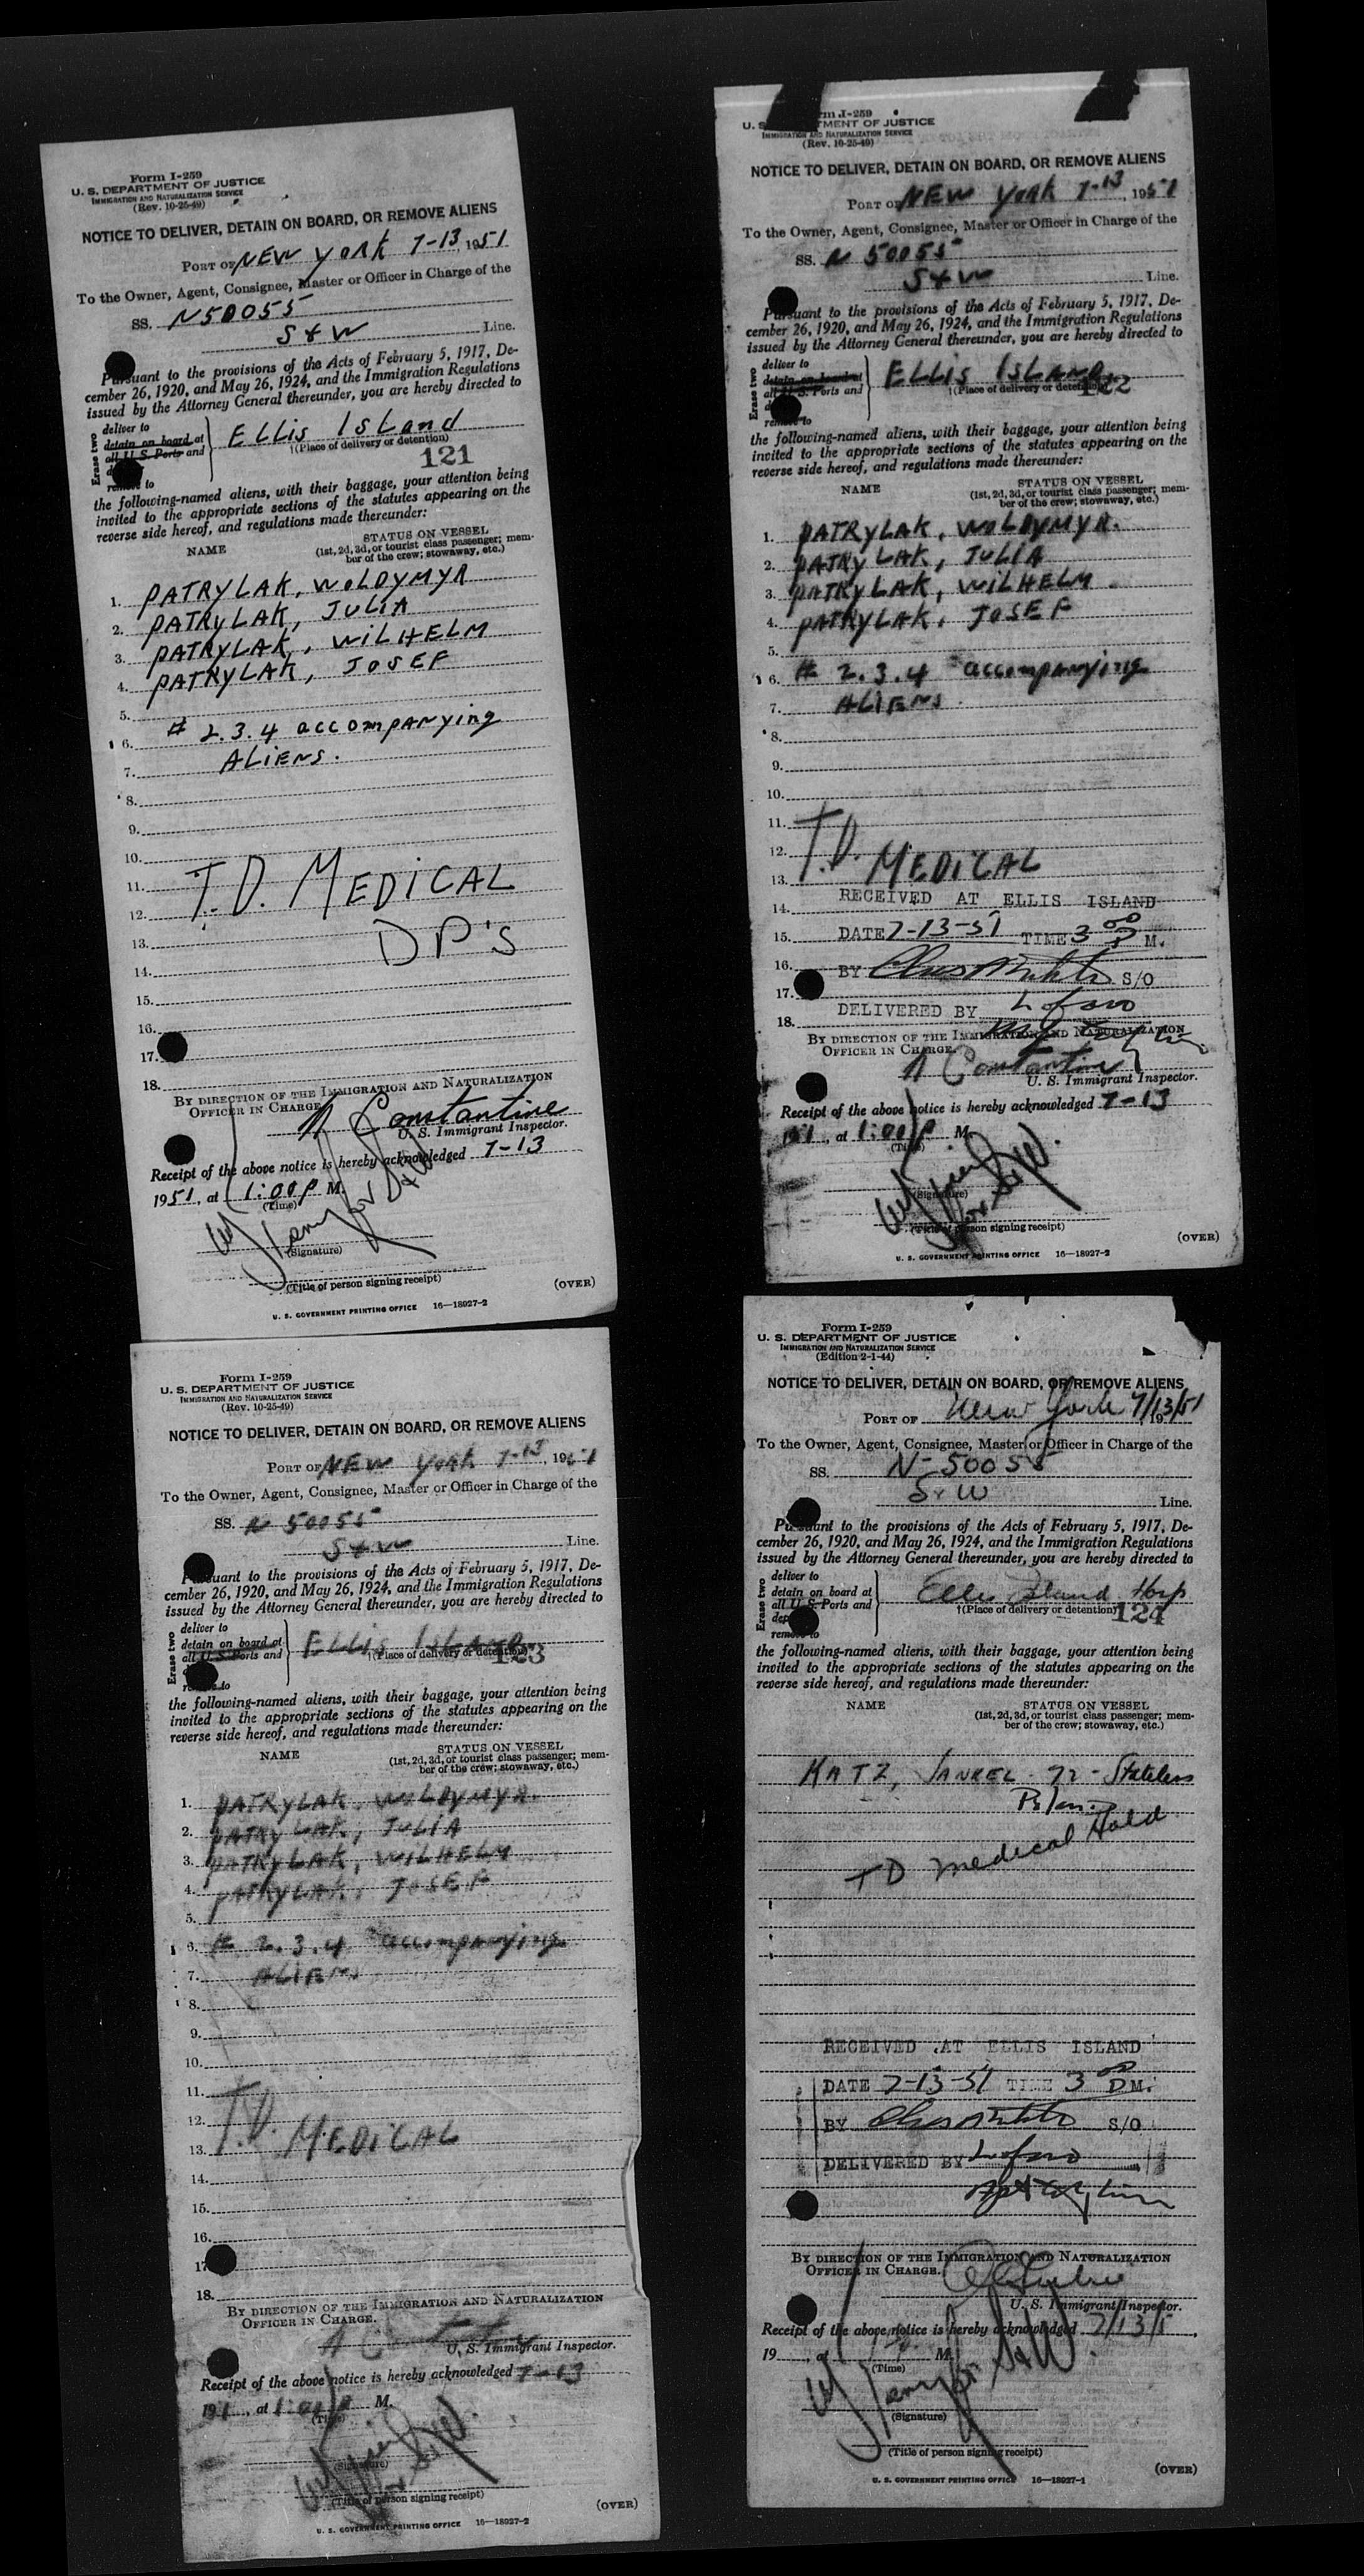 Form I-259
U. S. DEPARTMENT OF JUSTICE
IMMIGRATION AND NATURALIZATION SERVICE
(Rev. 10-25-49)
NOTICE TO DELIVER, DETAIN ON BOARD, OR REMOVE ALIENS
PORT OF NEW YORK 7-13, 1951
To the Owner, Agent, Consignee, Master or Officer in Charge of the
SS. N50055
S & W Line.
Pursuant to the provisions of the Acts of February 5, 1917, De-
cember 26, 1920, and May 26, 1924, and the Immigration Regulations
issued by the Attorney General thereunder, you are hereby directed to
Erase two
deliver to
detain on board at
all U. S. Ports and
remove to
ELLIS ISLand
†(Place of delivery or detention)
121
the following-named aliens, with their baggage, your attention being
invited to the appropriate sections of the statutes appearing on the
reverse side hereof, and regulations made thereunder:
NAME STATUS ON VESSEL
(1st, 2d, 3d, or tourist class passenger; mem-
ber of the crew; stowaway, etc.)
1. PATRYLAK, WOLDYMYR
2. PATRYLAK, JULIA
3. PATRYLAK, WILHELM
4. PATRYLAK, JOSEF
5.
6. # 2.3.4 accompanying
7. ALIENS.
8.
9.
10.
11. T.D. MEDICAL
12.
13. DP'S
14.
15.
16.
17.
18.
BY DIRECTION OF THE IMMIGRATION AND NATURALIZATION
OFFICER IN CHARGE.
N Constantine
U. S. Immigrant Inspector.
Receipt of the above notice is hereby acknowledged 7-13
1951, at 1:00 P M.
(Time)
(Signature)
(Title of person signing receipt)
(OVER)
U. S. GOVERNMENT PRINTING OFFICE 16—18927-2
Form I-259
U. S. DEPARTMENT OF JUSTICE
IMMIGRATION AND NATURALIZATION SERVICE
(Rev. 10-25-49)
NOTICE TO DELIVER, DETAIN ON BOARD, OR REMOVE ALIENS
PORT OF NEW YORK 7-13, 1951
To the Owner, Agent, Consignee, Master or Officer in Charge of the
SS. N 50055
S & W Line.
Pursuant to the provisions of the Acts of February 5, 1917, De-
cember 26, 1920, and May 26, 1924, and the Immigration Regulations
issued by the Attorney General thereunder, you are hereby directed to
Erase two
deliver to
detain on board at
all U. S. Ports and
remove to
ELLIS ISLAND
†(Place of delivery or detention)
122
the following-named aliens, with their baggage, your attention being
invited to the appropriate sections of the statutes appearing on the
reverse side hereof, and regulations made thereunder:
NAME STATUS ON VESSEL
(1st, 2d, 3d, or tourist class passenger; mem-
ber of the crew; stowaway, etc.)
1. PATRYLAK, WOLDYMYR.
2. PATRYLAK, JULIA
3. PATRYLAK, WILHELM
4. PATRYLAK, JOSEF
5.
6. # 2.3.4 accompanying
7. ALIENS.
8.
9.
10.
11.
12. T.D.
13. MEDICAL
14. RECEIVED AT ELLIS ISLAND
15. DATE 7-13-51 TIME 3 00 P M.
16. BY S/O
17.
18. DELIVERED BY Lofaro
BY DIRECTION OF THE IMMIGRATION AND NATURALIZATION
OFFICER IN CHARGE.
N Constantine
U. S. Immigrant Inspector.
Receipt of the above notice is hereby acknowledged 7-13
1951, at 1:00 P M.
(Time)
(Signature)
(Title of person signing receipt)
(OVER)
U. S. GOVERNMENT PRINTING OFFICE 16—18927-2
Form I-259
U. S. DEPARTMENT OF JUSTICE
IMMIGRATION AND NATURALIZATION SERVICE
(Rev. 10-25-49)
NOTICE TO DELIVER, DETAIN ON BOARD, OR REMOVE ALIENS
PORT OF NEW YORK 7-13, 1951
To the Owner, Agent, Consignee, Master or Officer in Charge of the
SS. N 50055
S & W Line.
Pursuant to the provisions of the Acts of February 5, 1917, De-
cember 26, 1920, and May 26, 1924, and the Immigration Regulations
issued by the Attorney General thereunder, you are hereby directed to
Erase two
deliver to
detain on board at
all U. S. Ports and
remove to
ELLIS ISLAND
†(Place of delivery or detention)
123
the following-named aliens, with their baggage, your attention being
invited to the appropriate sections of the statutes appearing on the
reverse side hereof, and regulations made thereunder:
NAME STATUS ON VESSEL
(1st, 2d, 3d, or tourist class passenger; mem-
ber of the crew; stowaway, etc.)
1. PATRYLAK, WOLDYMYR.
2. PATRYLAK, JULIA
3. PATRYLAK, WILHELM
4. PATRYLAK, JOSEF
5.
6. # 2.3.4 accompanying
7. ALIENS
8.
9.
10.
11.
12. T.D.
13. MEDICAL
14.
15.
16.
17.
18.
BY DIRECTION OF THE IMMIGRATION AND NATURALIZATION
OFFICER IN CHARGE.
U. S. Immigrant Inspector.
Receipt of the above notice is hereby acknowledged 7-13
1951, at 1:00 P M.
(Time)
(Signature)
(Title of person signing receipt)
(OVER)
U. S. GOVERNMENT PRINTING OFFICE 16—18927-2
Form I-259
U. S. DEPARTMENT OF JUSTICE
IMMIGRATION AND NATURALIZATION SERVICE
(Edition 2-1-44)
NOTICE TO DELIVER, DETAIN ON BOARD, OR REMOVE ALIENS
PORT OF New York 7/13/51
To the Owner, Agent, Consignee, Master or Officer in Charge of the
SS. N-50055
S & W Line.
Pursuant to the provisions of the Acts of February 5, 1917, De-
cember 26, 1920, and May 26, 1924, and the Immigration Regulations
issued by the Attorney General thereunder, you are hereby directed to
Erase two
deliver to
detain on board at
all U. S. Ports and
remove to
Ellis Island Hosp
†(Place of delivery or detention)
124
the following-named aliens, with their baggage, your attention being
invited to the appropriate sections of the statutes appearing on the
reverse side hereof, and regulations made thereunder:
NAME STATUS ON VESSEL
(1st, 2d, 3d, or tourist class passenger; mem-
ber of the crew; stowaway, etc.)
KATZ, JANKEL - 72 - Stateless
TD Medical Hold
RECEIVED AT ELLIS ISLAND
DATE 7-13-51 TIME 3 00 P M.
BY S/O
DELIVERED BY Lofaro
BY DIRECTION OF THE IMMIGRATION AND NATURALIZATION
OFFICER IN CHARGE.
U. S. Immigrant Inspector.
Receipt of the above notice is hereby acknowledged 7/13/51,
19, at M.
(Time)
(Signature)
(Title of person signing receipt)
(OVER)
U. S. GOVERNMENT PRINTING OFFICE 16—18927-1